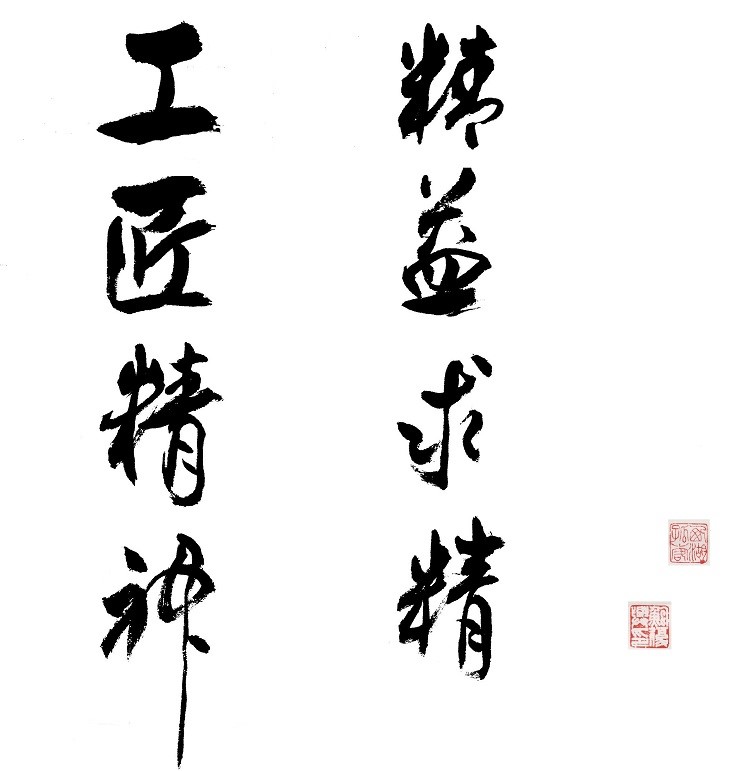 精益求精
工匠精神